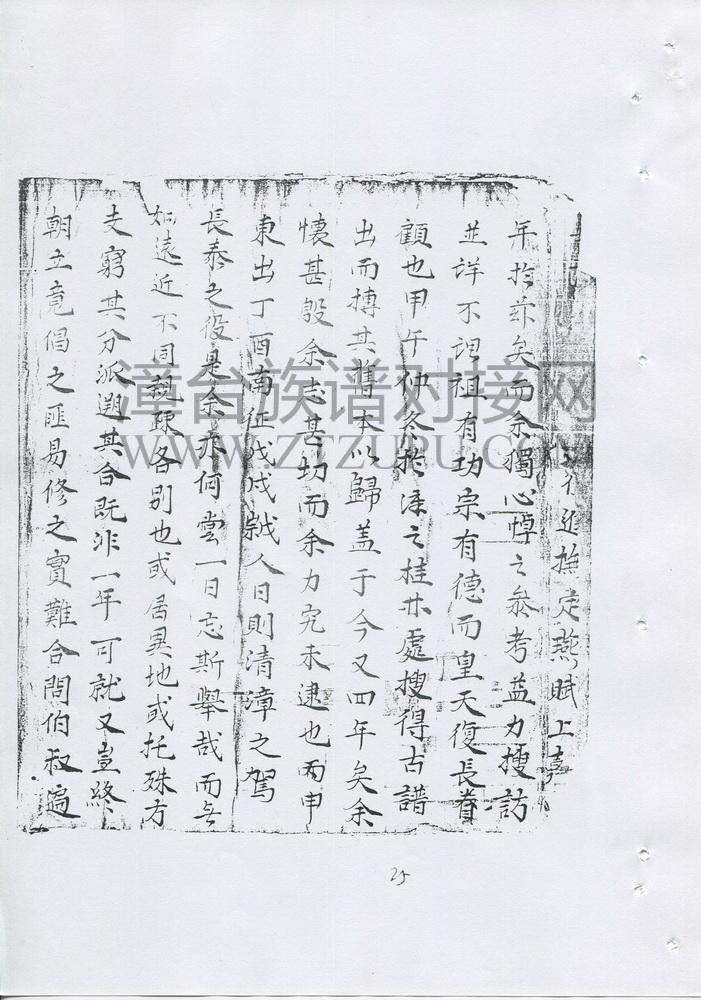 近撫定燕賦上
年於茲矣而余獨心悼之叅考益力搜訪
並詳不謂祖有功宗有德而皇天復長眷
顧也甲午仲冬於漳之桂林處搜得古譜
出而摶其舊本以歸盖于今又四年矣余
懷甚殷余志甚切而余力究未逮也丙申
東出丁酉南征戊戌人日則清漳之駕
長泰之役是余亦何嘗一日忘斯舉哉而無
如遠近不同親疎各別也或居異地或托殊方
支窮其分派遡其合既非一年可就又豈終
朝立竟倡之匪易修之實難合閤伯叔遍
漳台族谱对接网
WWW.ZTZUPU.COM
25